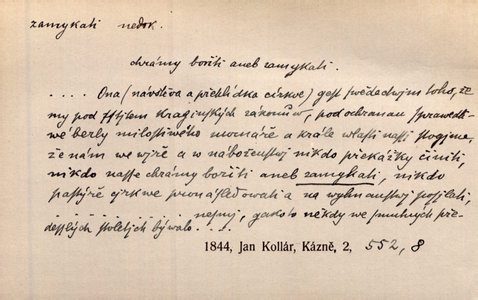 zamykati nedok.
chrámy bořiti aneb zamykati.
. . . . Ona (návštěva a přehlídka cirkve) gest swědectwjm toho, že
my pod sstjtem Kraginských zákonůw, pod ochranau sprawedli-
wé berly milostiwého mocnáře a krále wlasti nassj stogjme,
že nám we wjře a w náboženstwj nikdo překážky činiti,
nikdo nasse chrámy bořiti aneb zamykati, nikdo
pastýře cjrkwe pronásledowati a na wyhnanstwj posjlati,
. . . . . . . . . nesmj, gako to někdy we smutných pře-
desslých stoletjch býwalo. . . .
1844, Jan Kollár, Kázně, 2, 552, 8